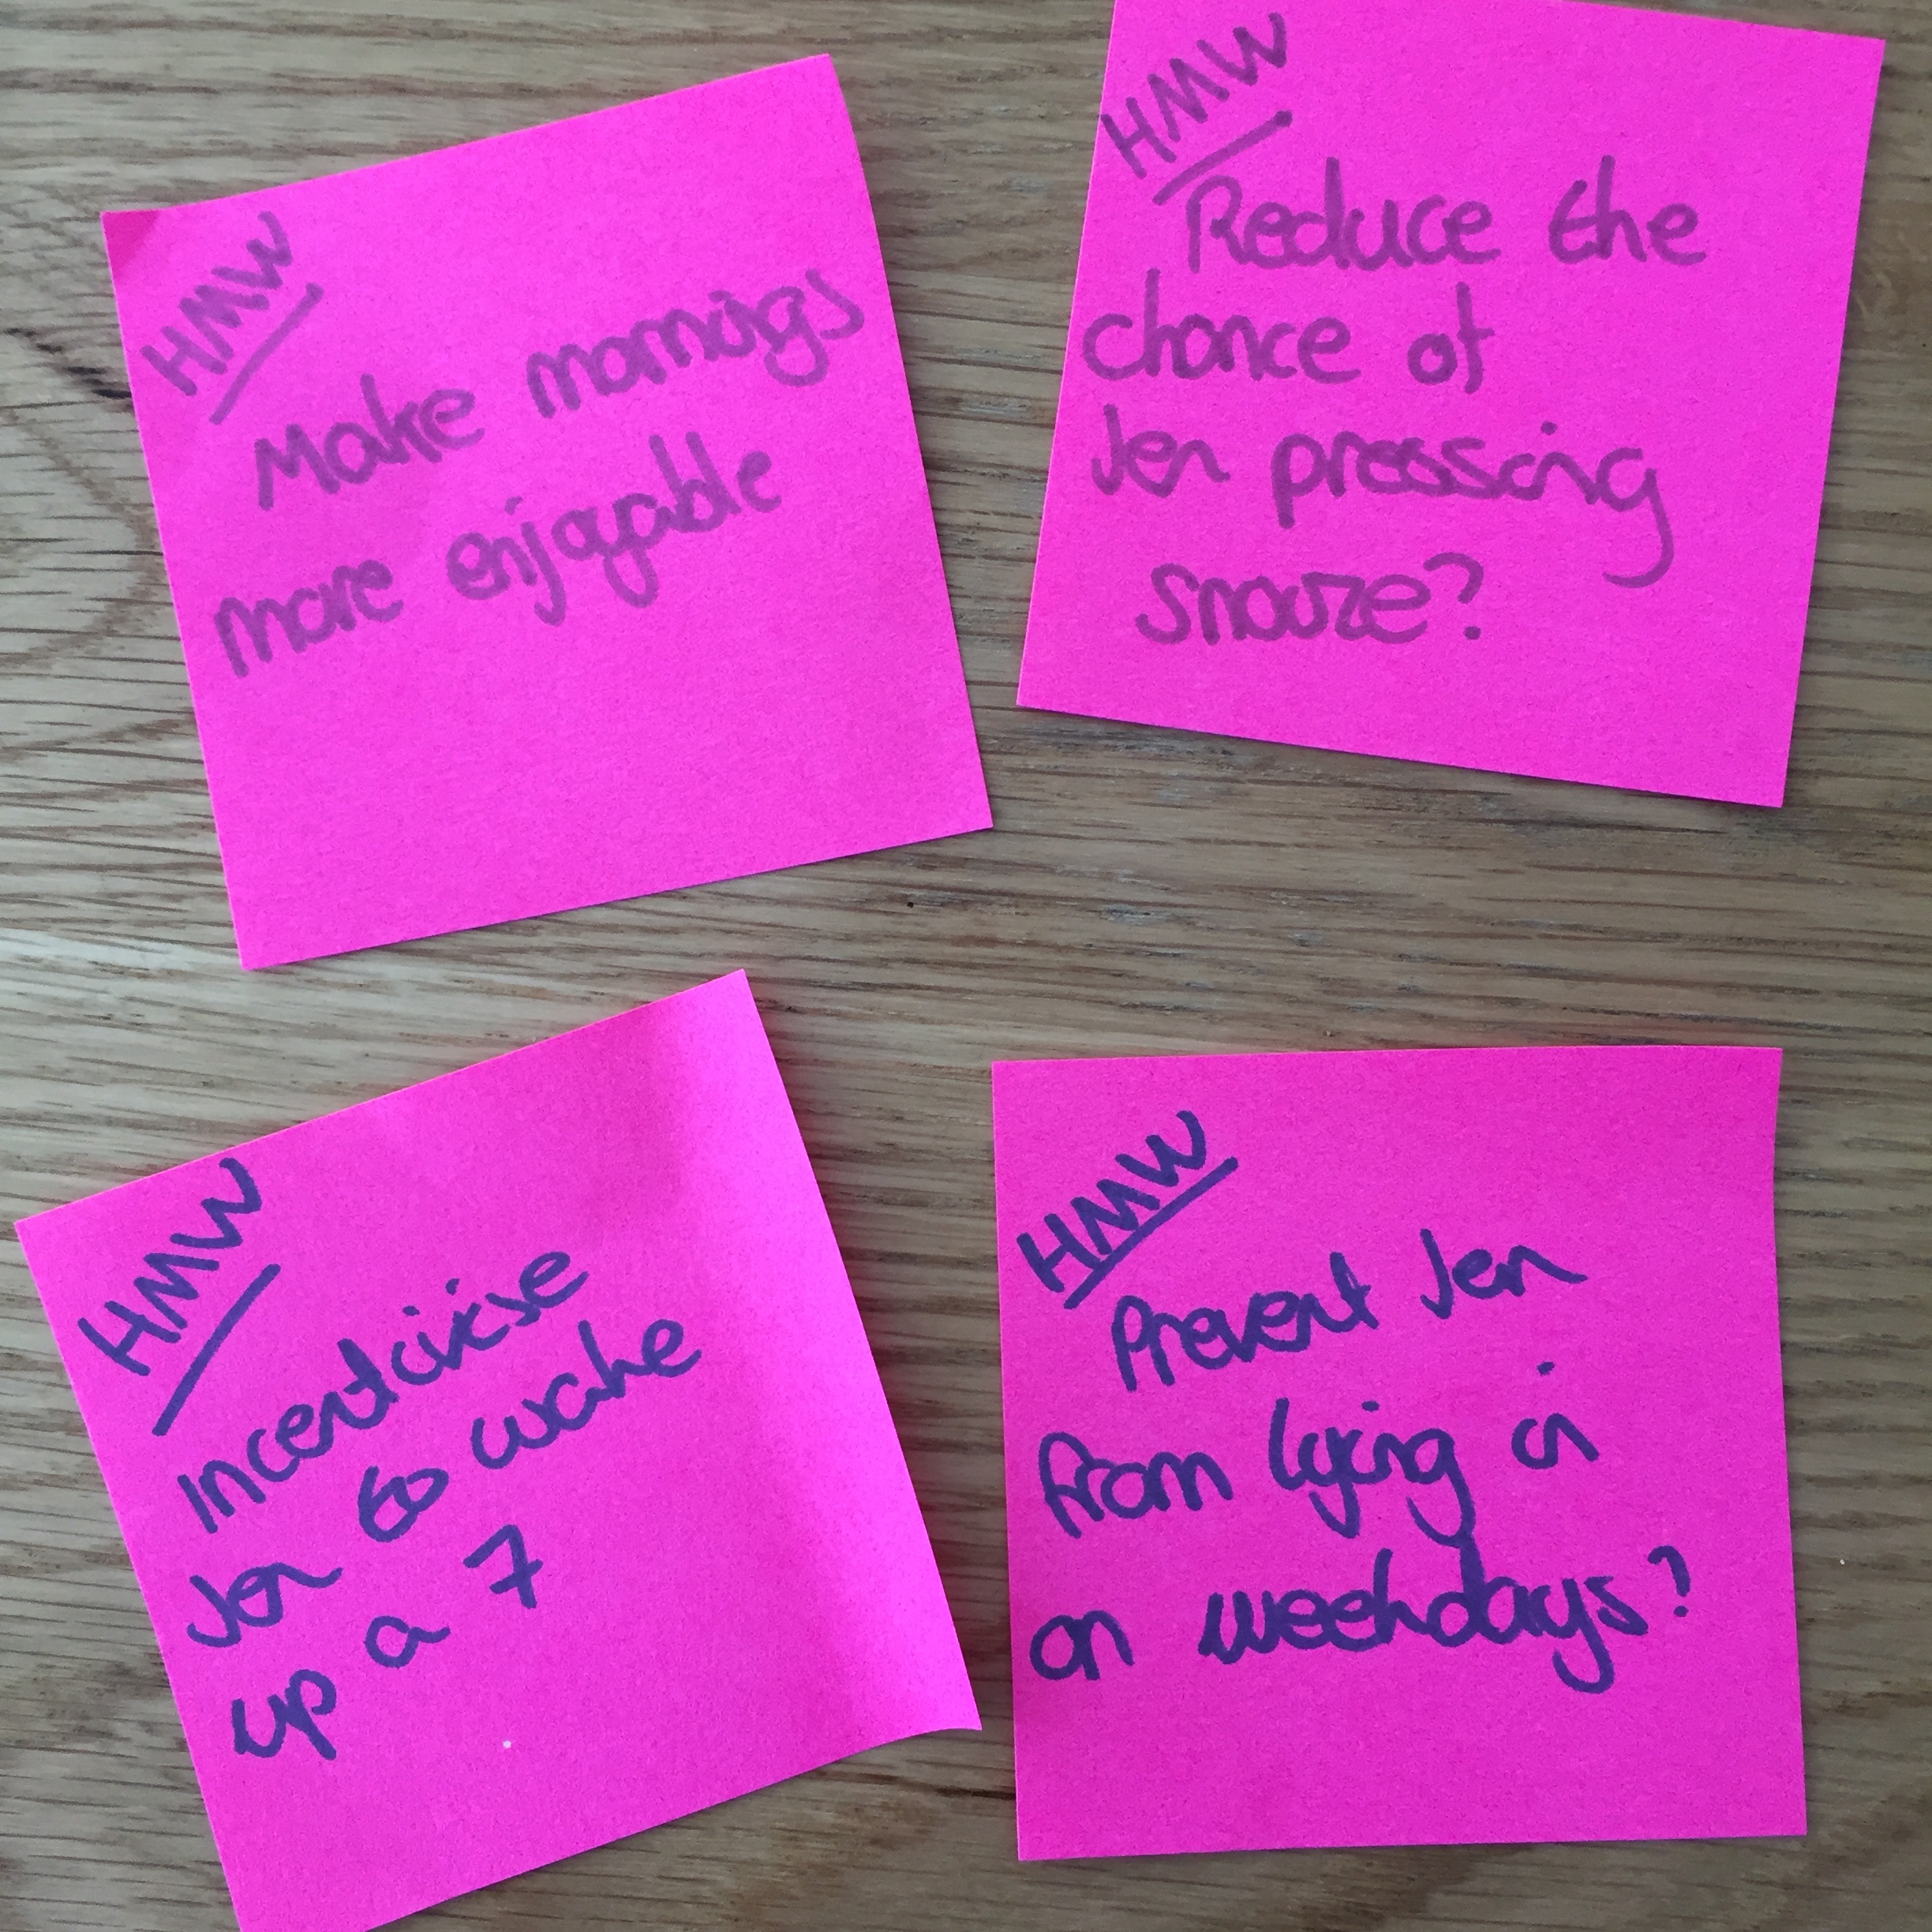 HMW
Make mornings
more enjoyable
HMW
Reduce the
chance of
Jen pressing
snooze?
HMW
Incentivise
Jen to wake
up a 7
HMW
Prevent Jen
from lying in
on weekdays?